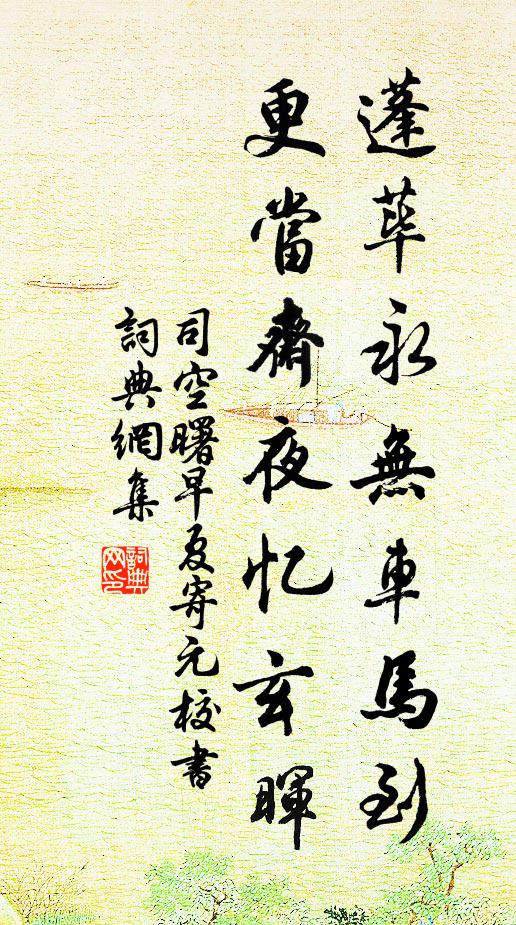 蓬荜永無車馬到
更當齋夜忆玄暉
司空曙早夏寄元校書
詞典網集
詞典网印